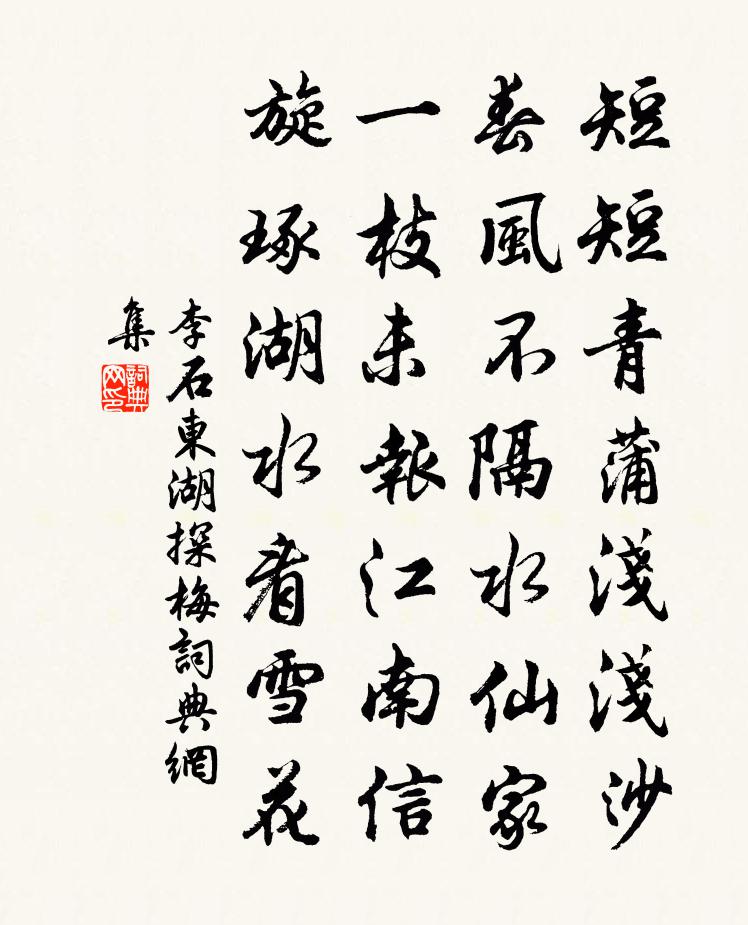 短短青蒲淺淺沙
春風不隔水仙家
一枝未報江南信
旋琢湖水看雪花
李石東湖探梅詞典網
集
詞典網印